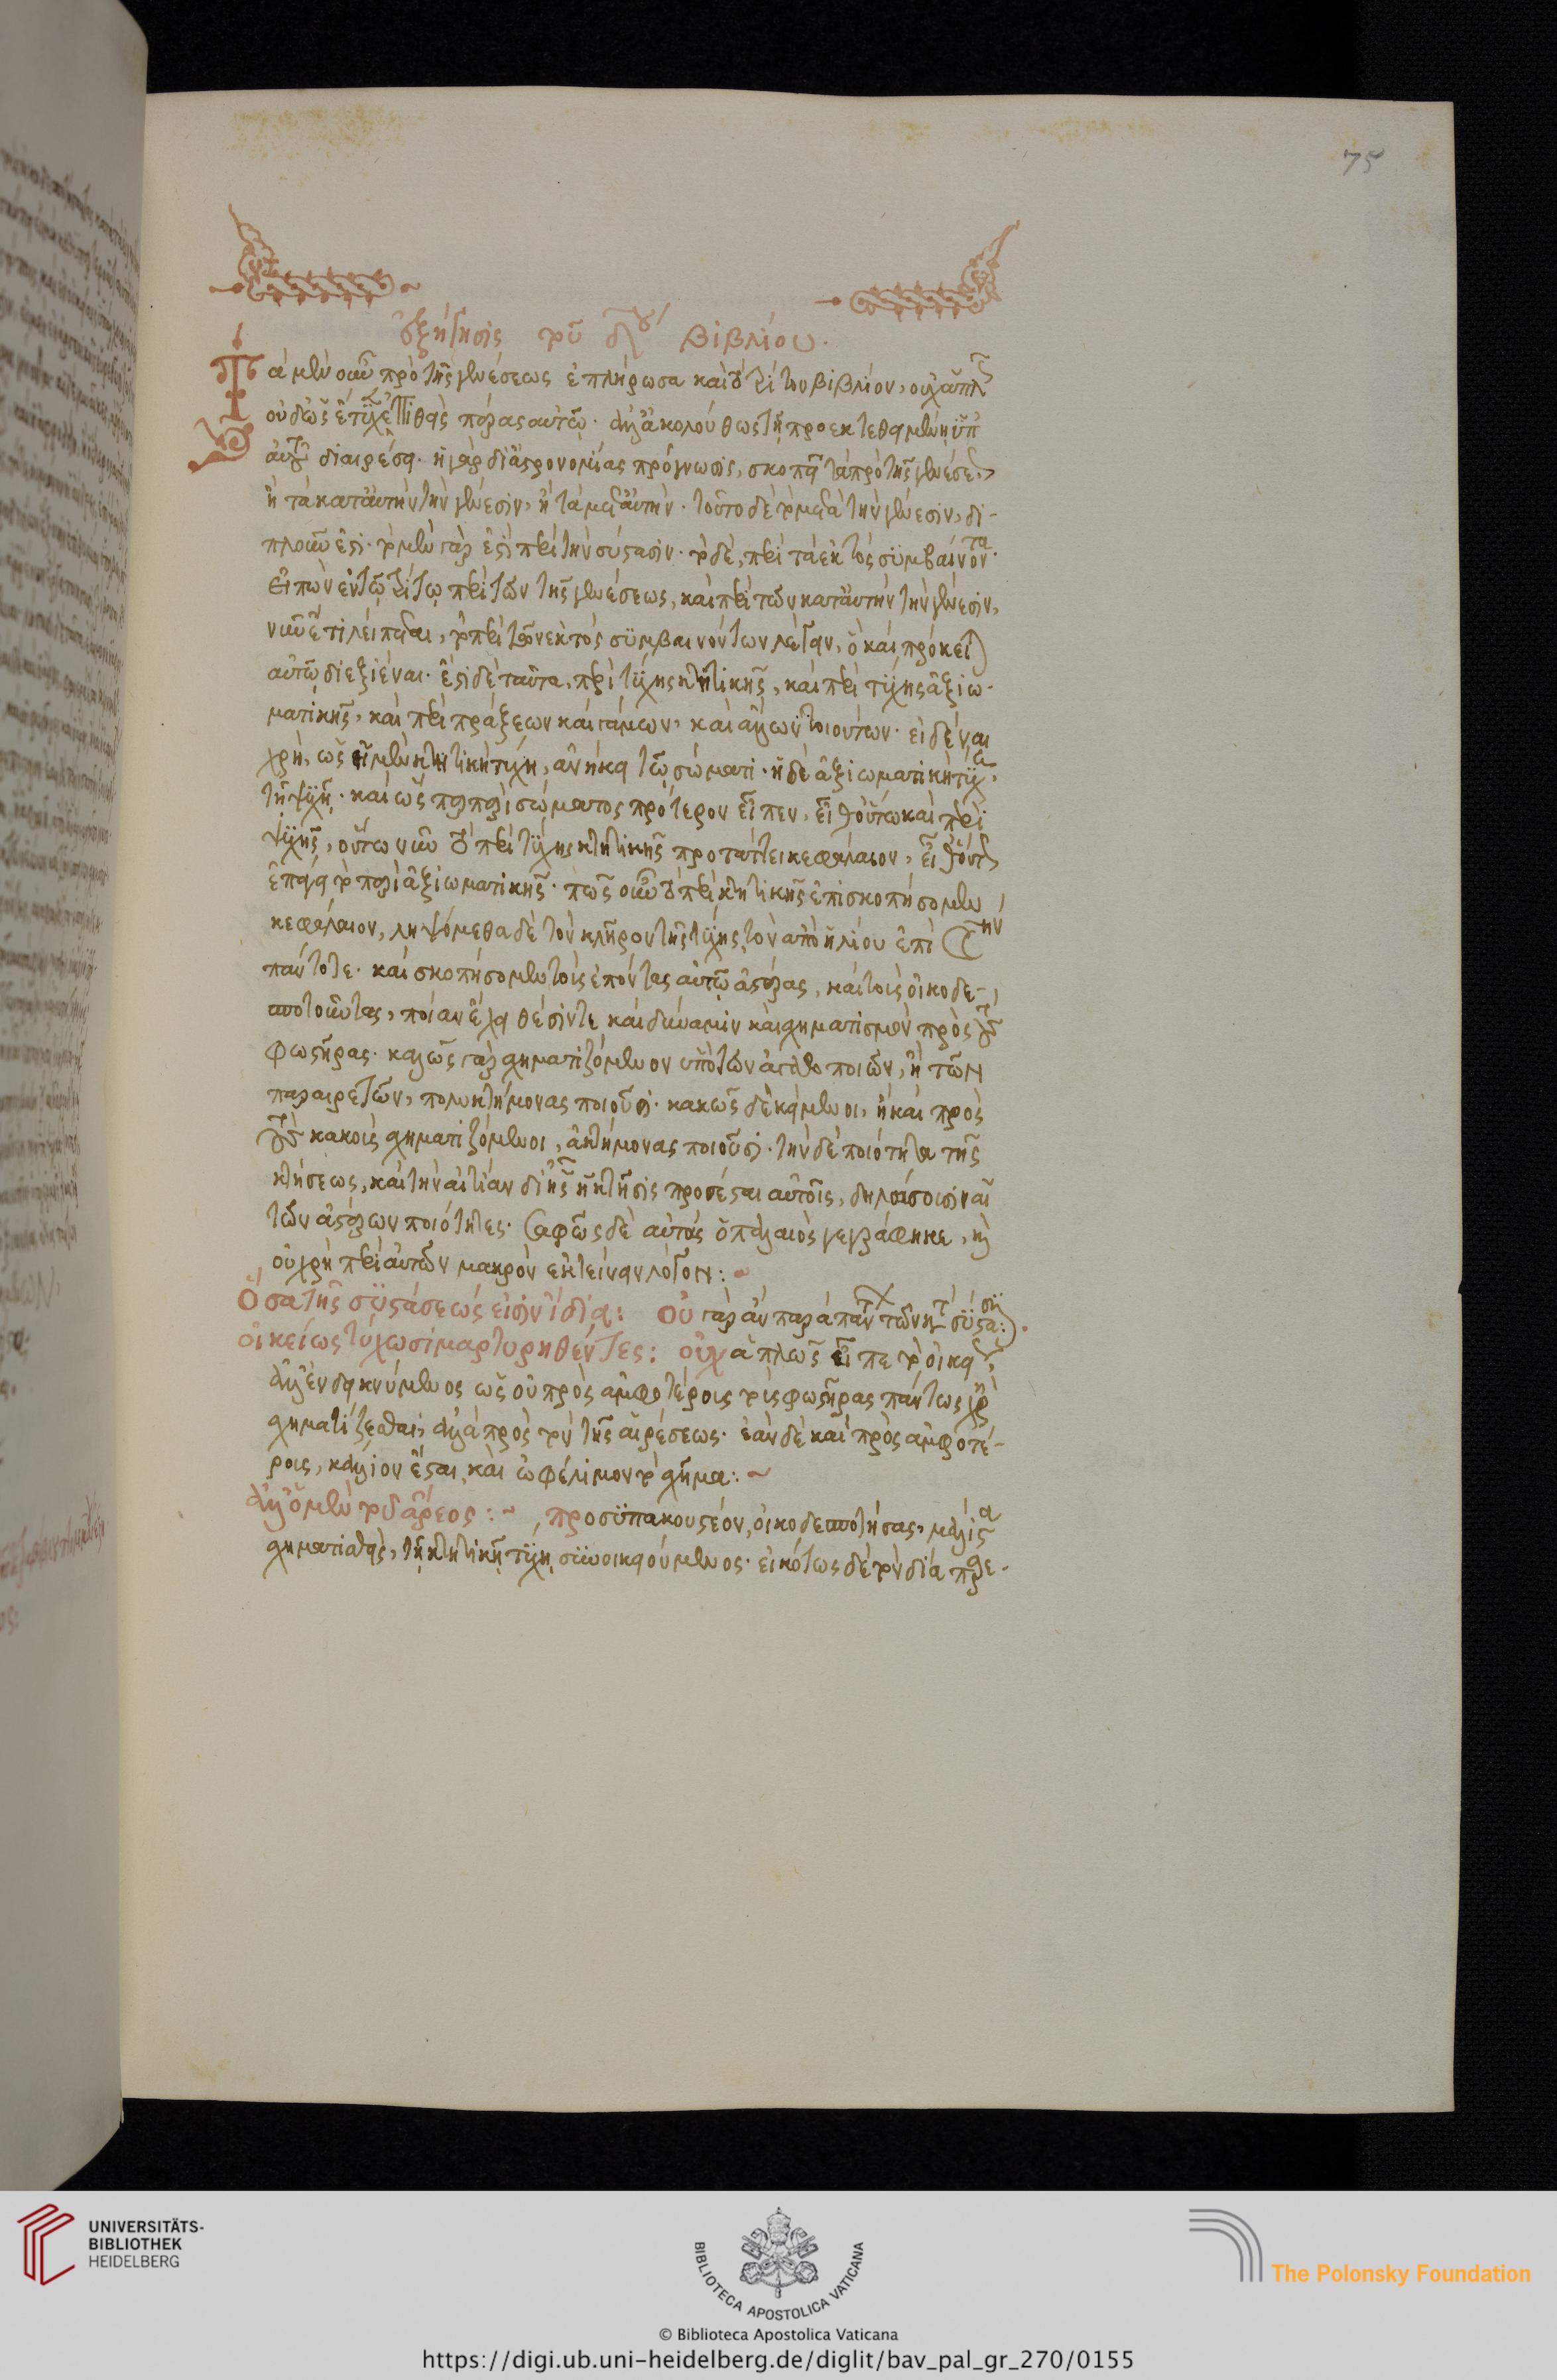 75
ἐξήγησις τοῦ δου βιβλίου.
Τὰ μὲν οὖν πρὸ τῆς γενέσεως ἐπλήρωσα καὶ τὸ τρίτον βιβλίον, οὐχ ἁπλῶς
οὐδ' ὡς ἔτυχε
αὐτοῦ διαιρέσει. ἡ γὰρ δι' ἀστρονομίας πρόγνωσις, σκοπεῖ τὰ πρὸ τῆς γενέσεως,
ἢ τὰ κατ' αὐτὴν τὴν γένεσιν, ἢ τὰ μετ' αὐτήν. τοῦτο δὲ τὸ μετὰ τὴν γένεσιν, δι-
πλοῦν ἐστι. τὸ μὲν γάρ ἐστι περὶ τὴν σύστασιν. τὸ δὲ, περὶ τὰ ἐκτὸς συμβαίνοντα.
εἰπὼν ἐν τῷ τρίτῳ περὶ τῶν τῆς γενέσεως, καὶ περὶ τῶν κατ' αὐτὴν τὴν γένεσιν,
νῦν ἔτι λείπεται, τὸ περὶ τῶν ἐκτὸς συμβαινόντων λέγειν, ὃ καὶ πρόκειται
αὐτῷ διεξιέναι. ἔστι δὲ ταῦτα, περὶ τύχης κτητικῆς, καὶ περὶ τύχης ἀξιω-
ματικῆς, καὶ περὶ πράξεων καὶ γάμων, καὶ ἄλλων τοιούτων. εἰδέναι
χρὴ, ὡς ἡ μὲν κτητικὴ τύχη, ἀνήκει τῷ σώματι. ἡ δὲ ἀξιωματικὴ τύχη,
τῇ ψυχῇ. καὶ ὥσπερ περὶ σώματος πρότερον εἶπεν, εἶθ' οὕτω καὶ περὶ
ψυχῆς, οὕτω νῦν τὸ περὶ τύχης κτητικῆς προτάττει κεφάλαιον, εἶθ' οὕτως
ἐπάγει τὸ περὶ ἀξιωματικῆς. πῶς οὖν τὸ περὶ κτητικῆς ἐπισκοπήσομεν
κεφάλαιον, ληψόμεθα δὲ τὸν κλῆρον τῆς τύχης τὸν ἀπὸ ἡλίου ἐπὶ ☾ην
πάντοτε. καὶ σκοπήσομεν τοὺς ἐπόντας αὐτῷ ἀστέρας, καὶ τοὺς οἰκοδε-
σποτοῦντας, ποίαν ἔχει θέσιν τε καὶ δύναμιν καὶ σχηματισμὸν πρὸς τοὺς
φωστῆρας. καλῶς γὰρ σχηματιζόμενον ὑπὸ τῶν ἀγαθοποιῶν, ἢ τῶν
παραιρετῶν, πολυκτήμονας ποιοῦσι. κακῶς δὲ κείμενοι, ἢ καὶ πρὸς
τοὺς κακοὺς σχηματιζόμενοι, ἀκτήμονας ποιοῦσι. τὴν δὲ ποιότητα τῆς
κτήσεως, καὶ τὴν αἰτίαν δι' ἧς ἡ κτῆσις προσέσται αὐτοῖς, δηλώσουσιν αἱ
τῶν ἀστέρων ποιότητες. σαφῶς δὲ αὐτὰς ὁ παλαιὸς γεγράφηκε, καὶ
οὐ χρὴ περὶ αὐτῶν μακρὸν ἐκτείνειν λόγον:~
Ὅσα τῆς συστάσεώς εἰσιν ἴδια: οὐ γὰρ ἂν παρὰ πάντων
οἰκείως τύχωσι μαρτυρηθέντες: οὐχ ἁπλῶς εἶπε τὸ οἰκείως,
ἀλλ' ἐνδεικνύμενος ὡς οὐ πρὸς ἀμφοτέροις τοὺς φωστῆρας πάντως χρὴ
σχηματίζεσθαι, ἀλλὰ πρὸς τὸν τῆς αἱρέσεως. ἐὰν δὲ καὶ πρὸς ἀμφοτέ-
ροις, κάλλιον ἔσται καὶ ὠφέλιμον τὸ σχῆμα:~
ἀλλ' ὁ μὲν τοῦ ἄρεος:~ προσυπακουστέον, οἰκοδεσποτήσας, μάλιστα
σχηματισθεὶς, τῇ κτητικῇ τύχῃ συνοικειούμενος. εἰκότως δὲ τὸν διὰ
UNIVERSITÄTS-
BIBLIOTHEK
HEIDELBERG
BIBLIOTECA APOSTOLICA VATICANA
The Polonsky Foundation
© Biblioteca Apostolica Vaticana
https://digi.ub.uni-heidelberg.de/diglit/bav_pal_gr_270/0155